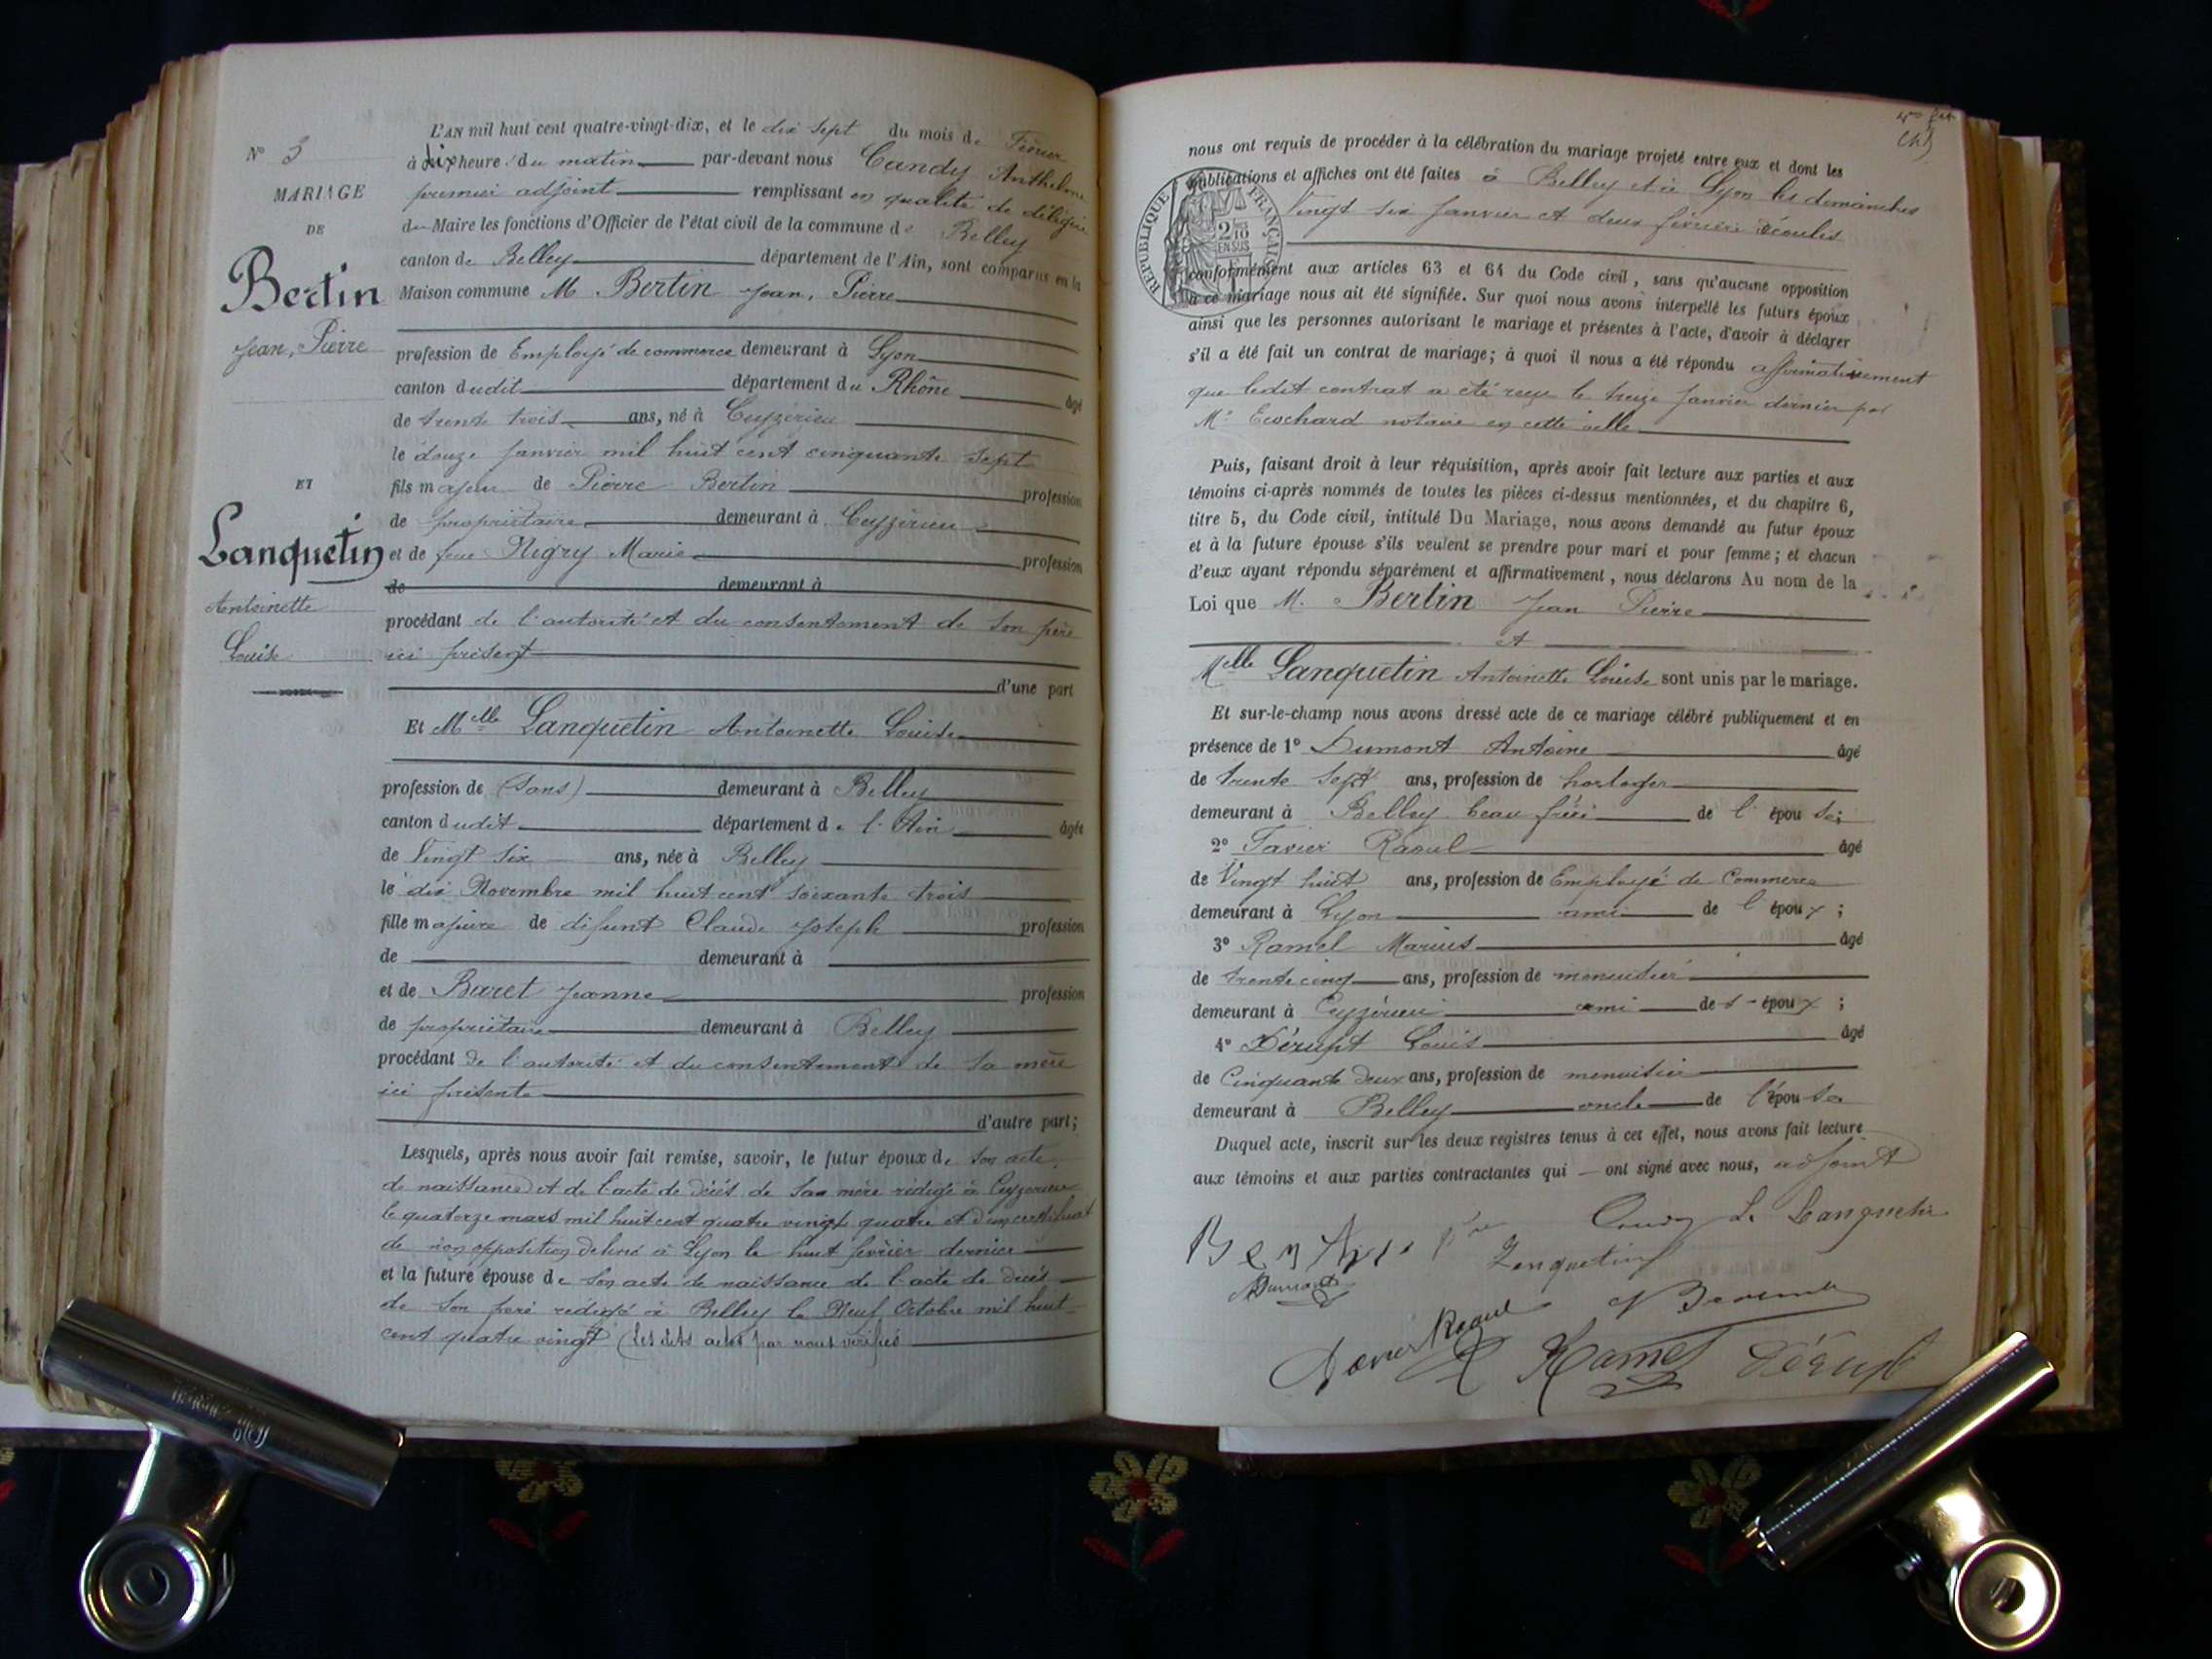 L'AN mil huit cent quatre-vingt-dix, et le dix sept du mois de Février
N° 3
à dix heures du matin par-devant nous Candy Anthelme
MARIAGE
premier adjoint remplissant en qualité de délégué
DE
du Maire les fonctions d'Officier de l'état civil de la commune de Belley
canton de Belley département de l'Ain, sont comparus en la
Bertin
Maison commune M Bertin Jean, Pierre
Jean, Pierre
profession de Employé de commerce demeurant à Lyon
canton dudit département du Rhône âgé
de trente trois ans, né à Ceyzérieu
le douze Janvier mil huit cent cinquante sept
ET
fils majeur de Pierre Bertin profession
de propriétaire demeurant à Ceyzérieu
Lanquetin
et de feue Nigry Marie profession
de demeurant à
Antoinette
procédant de l'autorité et du consentement de son père
Louise
ici présent
d'une part
Et Melle Lanquetin Antoinette Louise
profession de (sans) demeurant à Belley
canton dudit département de l'Ain âgée
de Vingt six ans, née à Belley
le dix Novembre mil huit cent soixante trois
fille majeure de défunt Claude Joseph profession
de demeurant à
et de Baret Jeanne profession
de propriétaire demeurant à Belley
procédant de l'autorité et du consentement de sa mère
ici présente
d'autre part;
Lesquels, après nous avoir fait remise, savoir, le futur époux de son acte
de naissance et de l'acte de décès de sa mère rédigé à Ceyzérieu
le quatorze mars mil huit cent quatre vingt quatre et d'un certificat
de non opposition délivré à Lyon le huit février dernier
et la future épouse de son acte de naissance de l'acte de décès
de son père rédigé à Belley le Neuf Octobre mil huit
cent quatre vingt (les dits actes par nous vérifiés
nous ont requis de procéder à la célébration du mariage projeté entre eux et dont les
publications et affiches ont été faites à Belley et à Lyon les dimanches
Vingt six Janvier et deux février écoulés
RÉPUBLIQUE FRANÇAISE
2/10 EN SUS
conformément aux articles 63 et 64 du Code civil, sans qu'aucune opposition
à ce mariage nous ait été signifiée. Sur quoi nous avons interpellé les futurs époux
ainsi que les personnes autorisant le mariage et présentes à l'acte, d'avoir à déclarer
s'il a été fait un contrat de mariage; à quoi il nous a été répondu affirmativement
que ledit contrat a été reçu le treize Janvier dernier par
Me Ecochard notaire en cette ville
Puis, faisant droit à leur réquisition, après avoir fait lecture aux parties et aux
témoins ci-après nommés de toutes les pièces ci-dessus mentionnées, et du chapitre 6,
titre 5, du Code civil, intitulé Du Mariage, nous avons demandé au futur époux
et à la future épouse s'ils veulent se prendre pour mari et pour femme; et chacun
d'eux ayant répondu séparément et affirmativement, nous déclarons Au nom de la
Loi que M. Bertin Jean Pierre
et
Melle Lanquetin Antoinette Louise sont unis par le mariage.
Et sur-le-champ nous avons dressé acte de ce mariage célébré publiquement et en
présence de 1° Dumont Antoine âgé
de trente sept ans, profession de horloger
demeurant à Belley beau frère de l'épouse;
2° Tavier Raoul âgé
de Vingt huit ans, profession de Employé de Commerce
demeurant à Lyon ami de l'époux;
3° Ramel Marius âgé
de trente cinq ans, profession de menuisier
demeurant à Ceyzérieu ami de l'époux;
4° Dérupt Louis âgé
de Cinquante deux ans, profession de menuisier
demeurant à Belley oncle de l'épouse
Duquel acte, inscrit sur les deux registres tenus à cet effet, nous avons fait lecture
aux témoins et aux parties contractantes qui ont signé avec nous, adjoint
Bertin Candy L. Lanquetin
Lanquetin
Dumont
Raoul
Ramel Dérupt